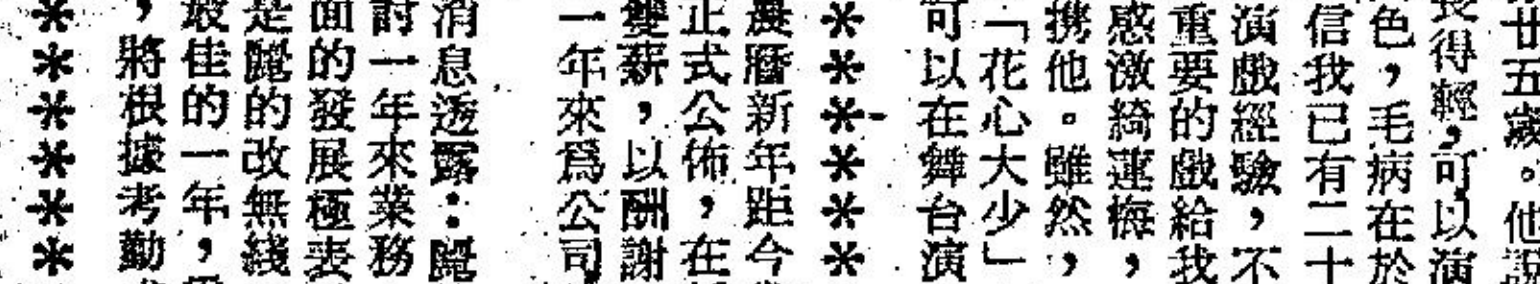 廿五歲。他說
長得輕,可以演
色,毛病在於
信我已有二十
演戲經驗,不
重要的戲給我
感激綺蓮梅,
携他。雖然,
「花心大少」
可以在舞台演
******
農曆新年距今
正式公佈,在
雙薪,以酬謝
一年來爲公司
消息透露:麗
討一年來業務
面的發展極
是麗的改無綫
最佳的一年,
,將根據考勤
******